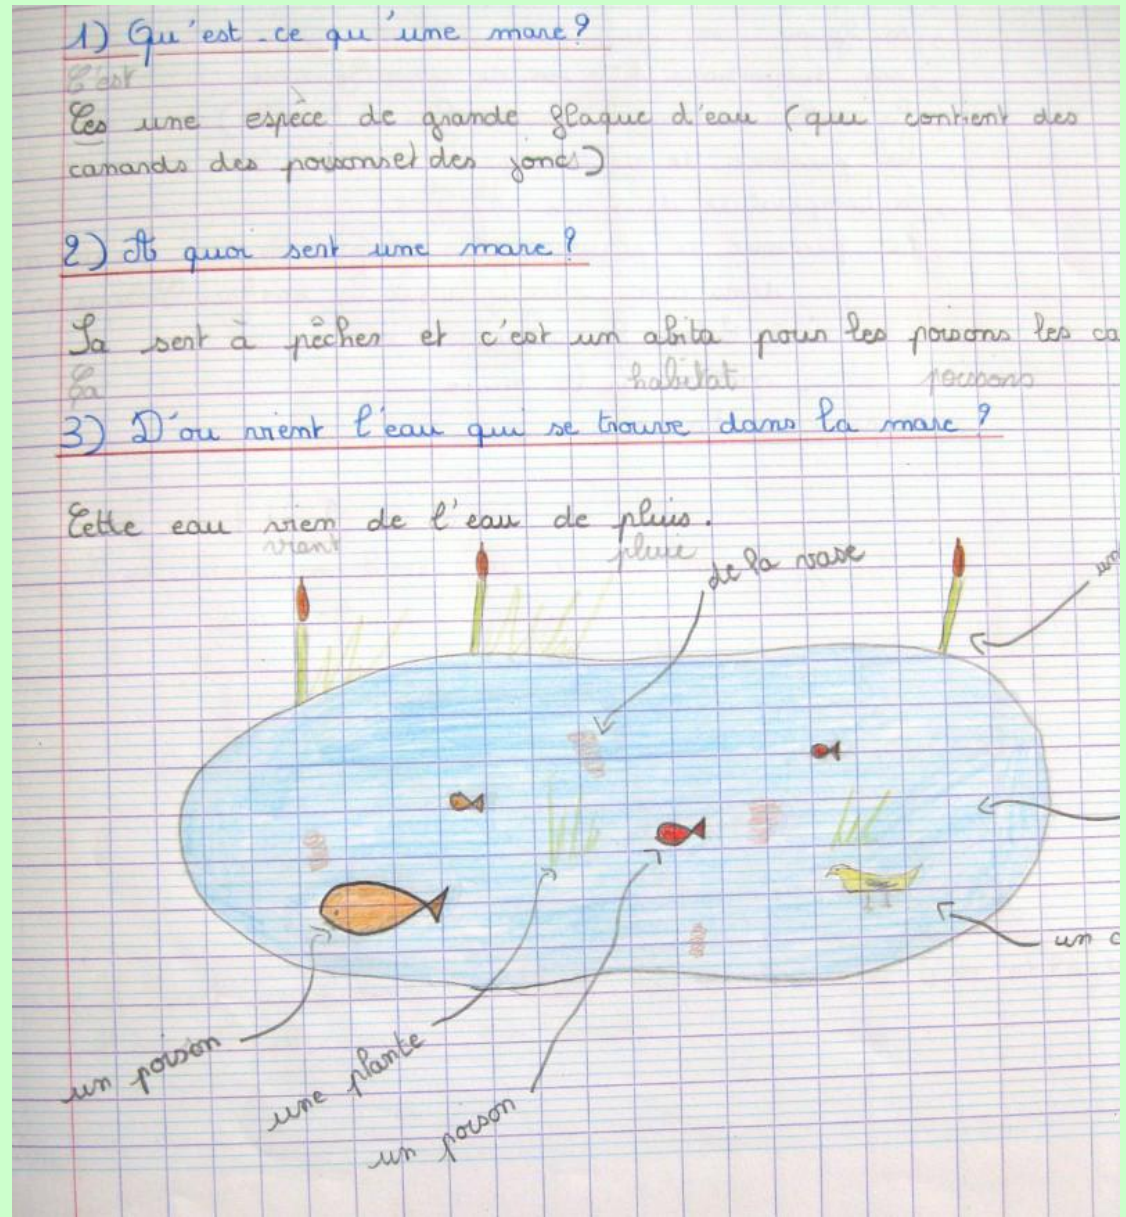 1) Qu'est-ce qu'une mare?
C'est
Ces une espèce de grande flaque d'eau (qui contient des
canards des poisonset des joncs)
2) A quoi sert une mare?
Sa sert à pêcher et c'est un abita pour les poisons les ca
Ça habitat poissons
3) D'ou vient l'eau qui se trouve dans la mare?
Cette eau vien de l'eau de pluis.
vient pluie
de la vase
un
un c
un poison
une plante
un poison